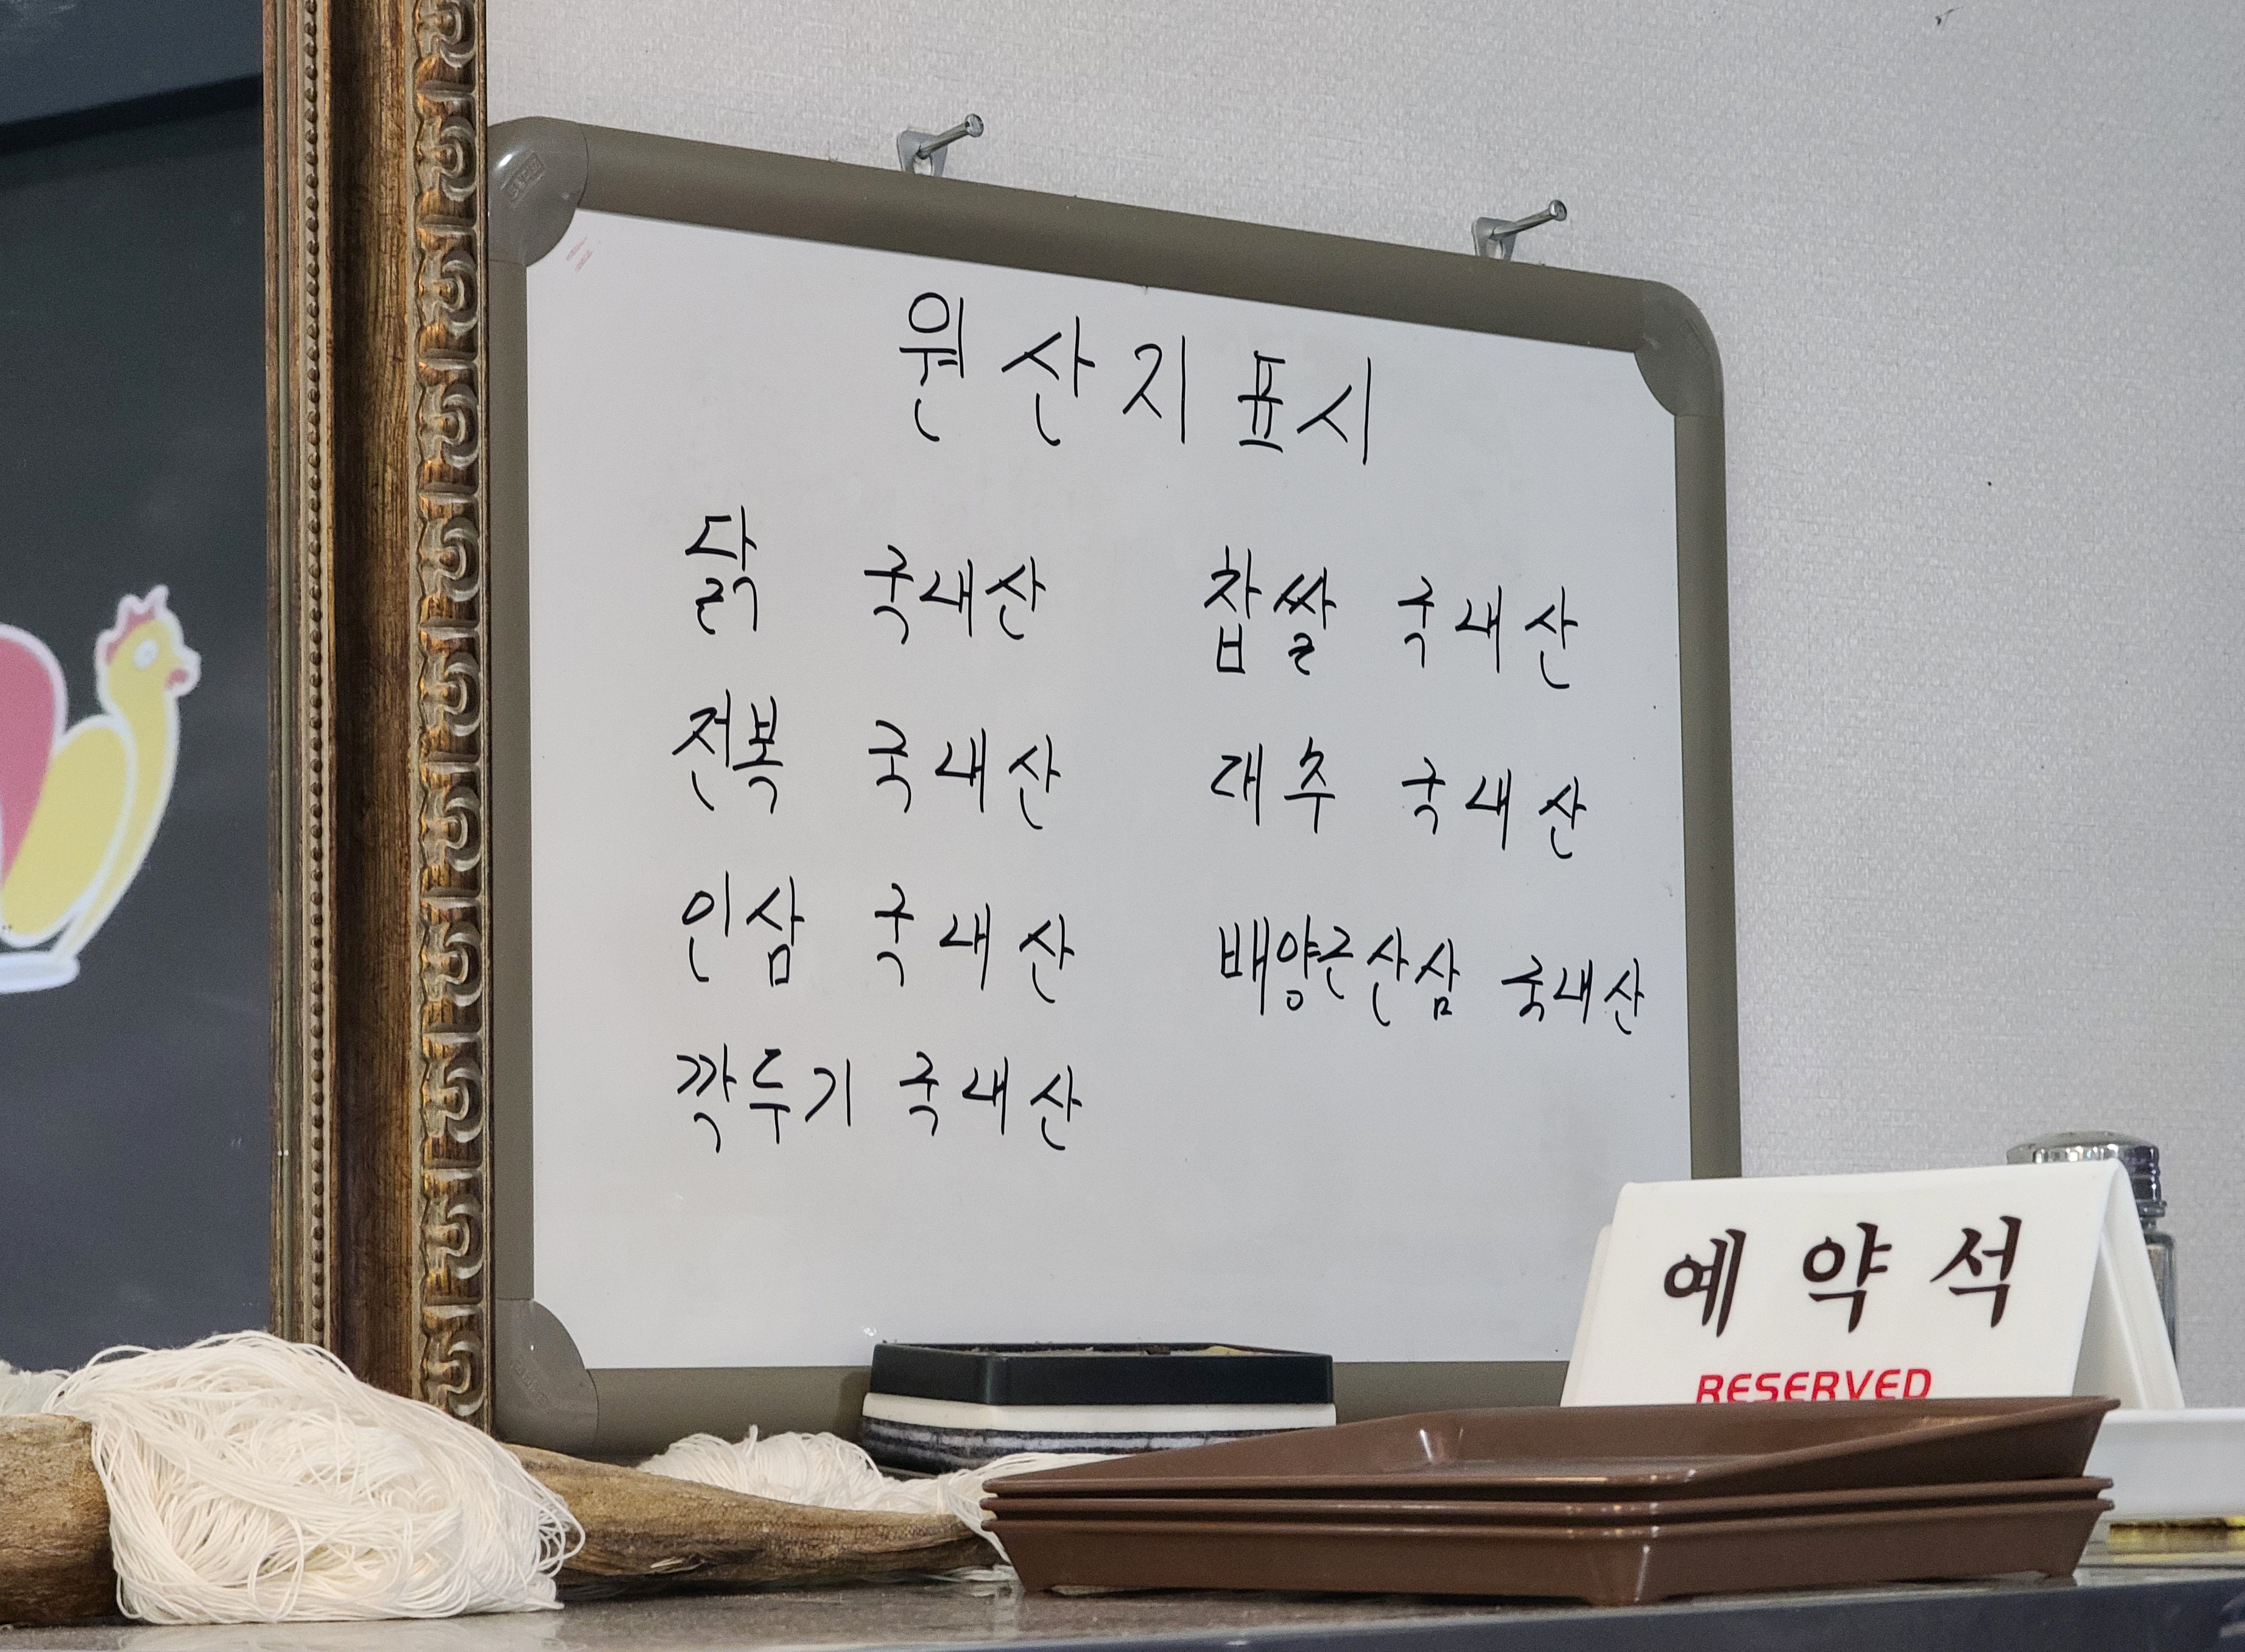 원산지 표시
닭 국내산
전복 국내산
인삼 국내산
깍두기 국내산
찹쌀 국내산
대추 국내산
배양근산삼 국내산
예약석
RESERVED